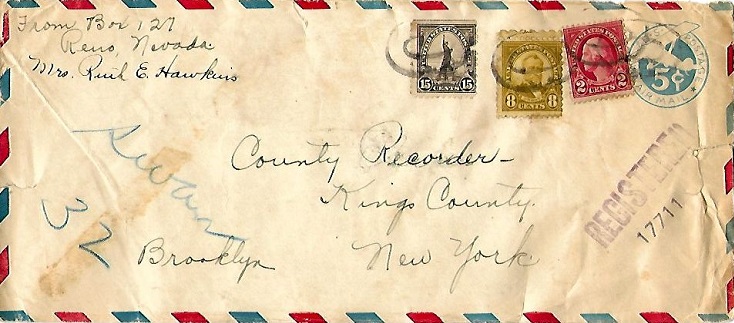 From Box 127
Reno, Nevada.
Mrs. E. Hawkins
UNITED STATES POSTAGE
15 CENTS 15
8 CENTS 8
2 CENTS 2
5¢
AIR MAIL
County Recorder-
Kings County.
Brooklyn New York
Swan
32
REGISTERED
17711